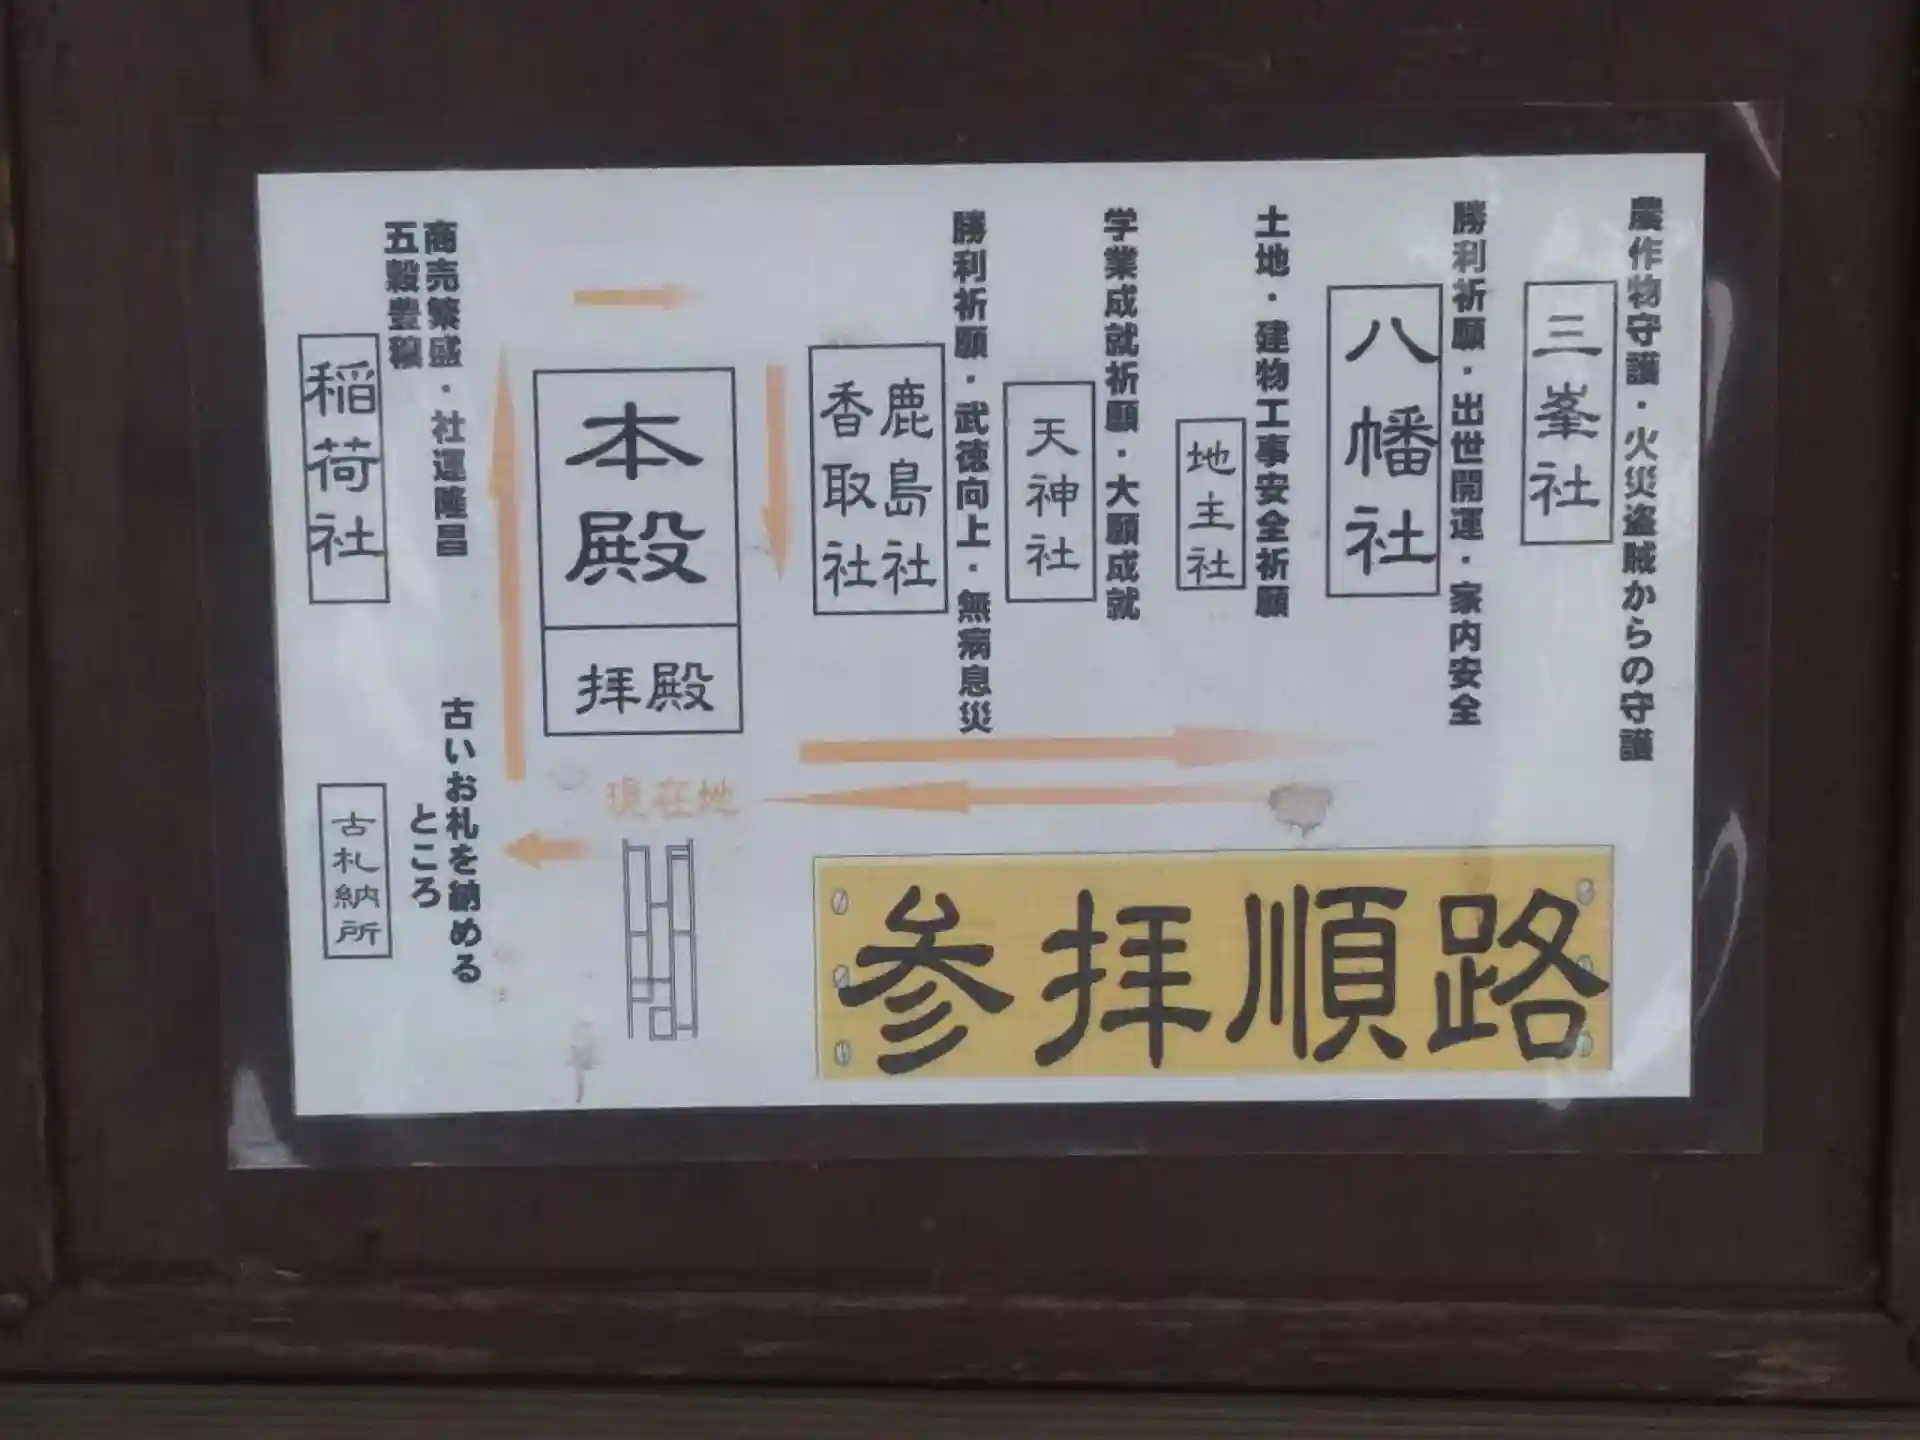 農作物守護・火災盗賊からの守護
三峯社
勝利祈願・出世開運・家内安全
八幡社
土地・建物工事安全祈願
地主社
学業成就祈願・大願成就
天神社
勝利祈願・武徳向上・無病息災
鹿島社
香取社
本殿
拝殿
商売繁盛・社運隆昌
五穀豊穣
稲荷社
現在地
古いお札を納める
ところ
古札納所
参拝順路